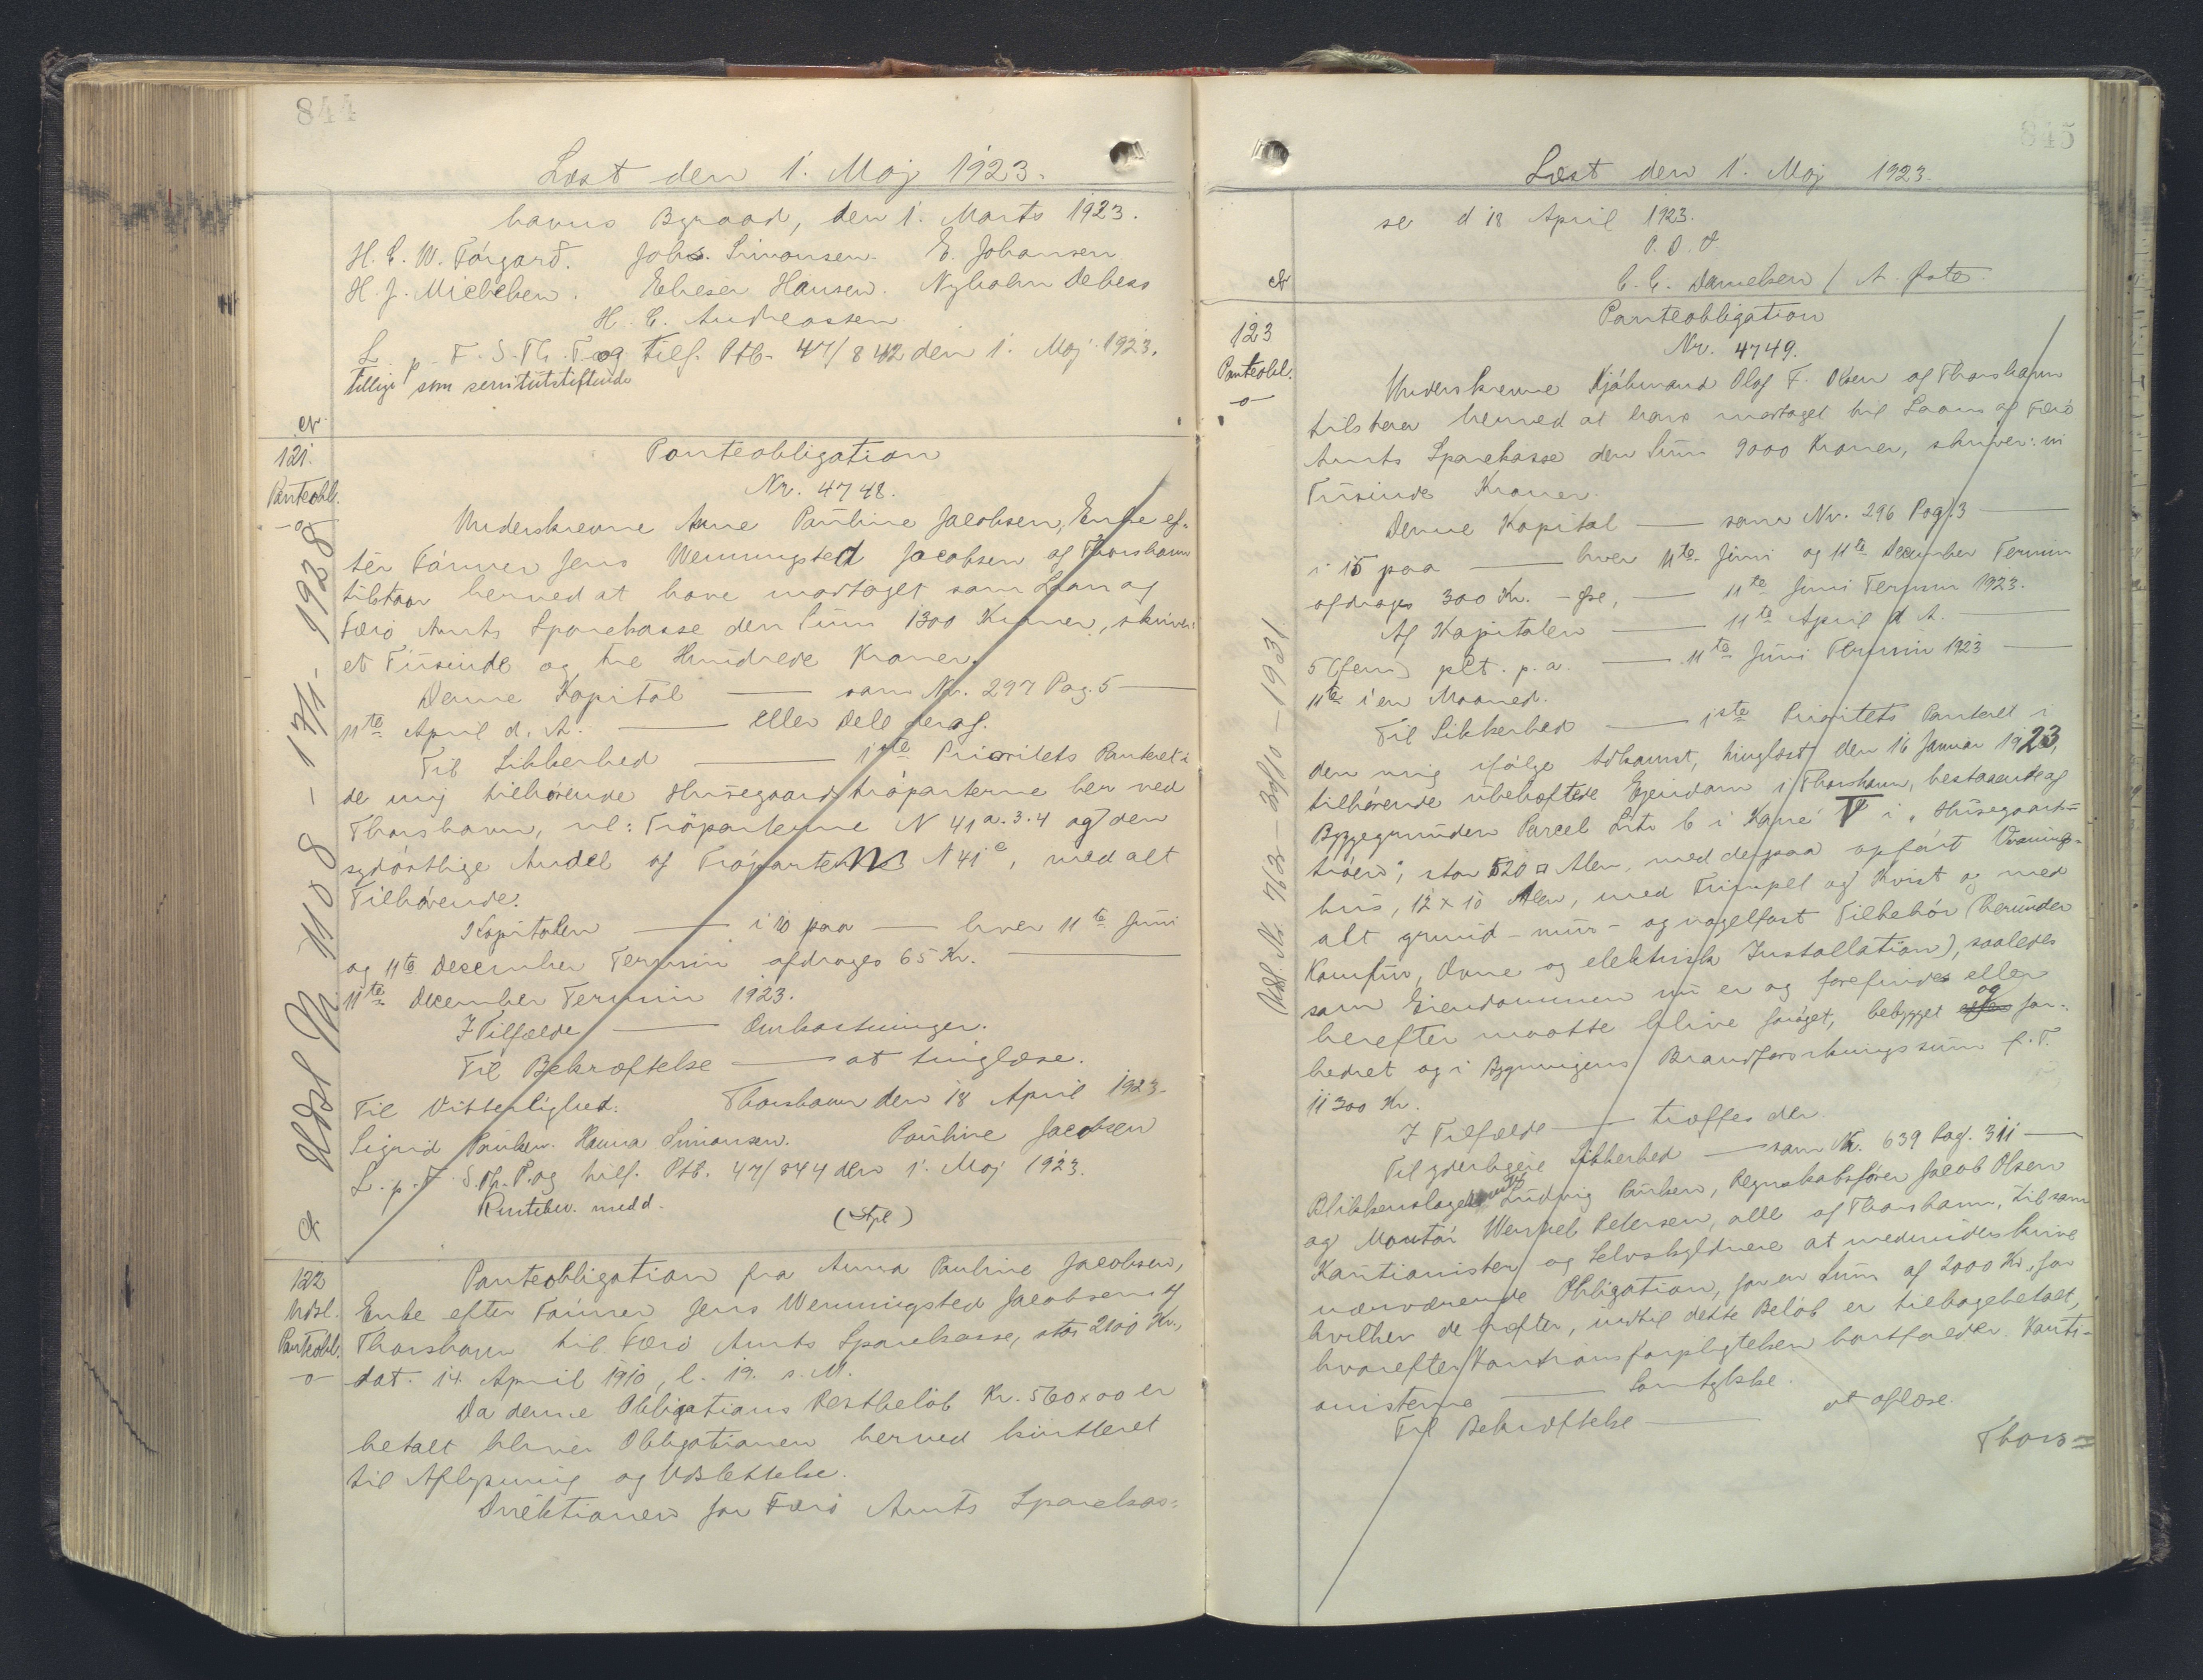 844
Læst den 1. Maj 1923.
havns Byraad, den 1. Marts 1923.
H. C. W. Tórgarð. Johs. Simonsen. E. Johansen
H. J. Michelsen. Ebeser Hansen. Nyholm Debess
H. C. Andreassen
L. p. F. S. Th. T. og Tilf. Ptb. 47/842 den 1. Maj 1923.
tillige som servitutstiftende
cr
121.
Panteobl.
-o-
Panteobligation
Nr. 4748.
Underskrevne Anne Pauline Jacobsen, Enke ef-
ter Farver Jens Wenningsted Jacobsen af Thorshavn
tilstaar herved at have modtaget som Laan af
Færø Amts Sparekasse den Sum 1300 Kroner, skriver:
et Tusinde og tre Hundrede Kroner.
Denne Kapital — som Nr. 297 Pag. 5 —
11te April d. A. — eller Dele deraf.
Til Sikkerhed — 1ste Prioritets Panteret i
de mig tilhørende Husegaardstrøparterne her ved
Thorshavn, nl: Trøparterne N 41a.3.4 og den
sydøstlige Andel af Trøparten N 41e, med alt
Tilhørende.
Kapitalen — i 10 paa — hver 11te Juni
og 11te December Termin afdrages 65 Kr. —
11te December Termin 1923.
I Tilfælde — Omkostninger.
Til Bekræftelse — at tinglæse.
Til Vitterlighed: Thorshavn den 18 April 1923
Sigrid Poulsen. Hanna Simonsen. Pauline Jacobsen
L. p. F. S. Th. T. og tilf. Ptb. 47/844 den 1. Maj 1923.
Rentebev. medd.
(Stpl)
Udsl Nr 1108 – 17/1- 1928
cr
122
Udsl.
Panteobl.
-o-
Panteobligation fra Anna Pauline Jacobsen,
Enke efter Farver Jens Wenningsted Jacobsen af
Thorshavn til Færø Amts Sparekasse, stor 2100 Kr.,
dat. 14. April 1910, l. 19. s. M.
Da denne Obligations Restbeløb Kr. 560x00 er
betalt bliver Obligationen herved kvitteret
til Aflysning og Udslettelse.
Direktionen for Færø Amts Sparekas-
845
Læst den 1. Maj 1923.
se d 18 April 1923.
P. D. V.
C. C. Danielsen / A. Østø
cr
123
Panteobl.
-o-
Panteobligation
Nr. 4749.
Underskrevne Kjøbmand Olaf F. Olsen af Thorshavn
tilstaar herved at have modtaget til Laans af Færø
Amts Sparekasse den Sum 9000 Kroner, skriver: ni
Tusinde Kroner.
Denne Kapital — som Nr. 296 Pag. 3 —
i 15 paa — hver 11te Juni og 11te December Termin
afdrages 300 Kr. - Øre, — 11te Juni Termin 1923.
Af Kapitalen — 11te April d. A. —
5 (fem) pCt. p. a. — 11te Juni Termin 1923 —
11te i en Maaned.
Til Sikkerhed — 1ste Prioritets Panteret i
den mig ifølge Adkomst, tinglæst den 16 Januar 1923,
tilhørende ubehæftede Ejendom i Thorshavn, bestaaende af
Byggegrunden Parcel Litr b i Karré V i "Husegaards-
trøen", stor 520 □ Alen, med derpaa opført Vaanings-
hus, 12 x 10 Alen, med Trempel og Kvist og med
alt grund- mur- og nagelfast Tilbehør (herunder
Komfur, Ovne og elektrisk Installation), saaledes
som Eiendommen nu er og forefindes eller
herefter maatte blive forøget, bebygget og for-
bedret og i Bygningens Brandforsikringssum p.T.
11300 Kr.
I Tilfælde — træffes der
Til yderligere Sikkerhed — som Nr. 639 Pag. 311 —
Blikkenslager Ludvig Poulsen, Regnskabsfører Jacob Olsen
og Montør Wenzel Petersen, alle af Thorshavn, til som
Kautionister og Selvskyldnere at medunderskrive
nærværende Obligation, for en Sum af 2000 Kr., for
hvilken de hæfter, indtil dette Beløb er tilbagebetalt,
hvorefter Kautionsforpligtelsen bortfalder. Kauti-
onisterne — Samtykke.
Til Bekræftelse — at aflæse.
Thors=
Udsl. Nr. 762 – 30/10 – 1931